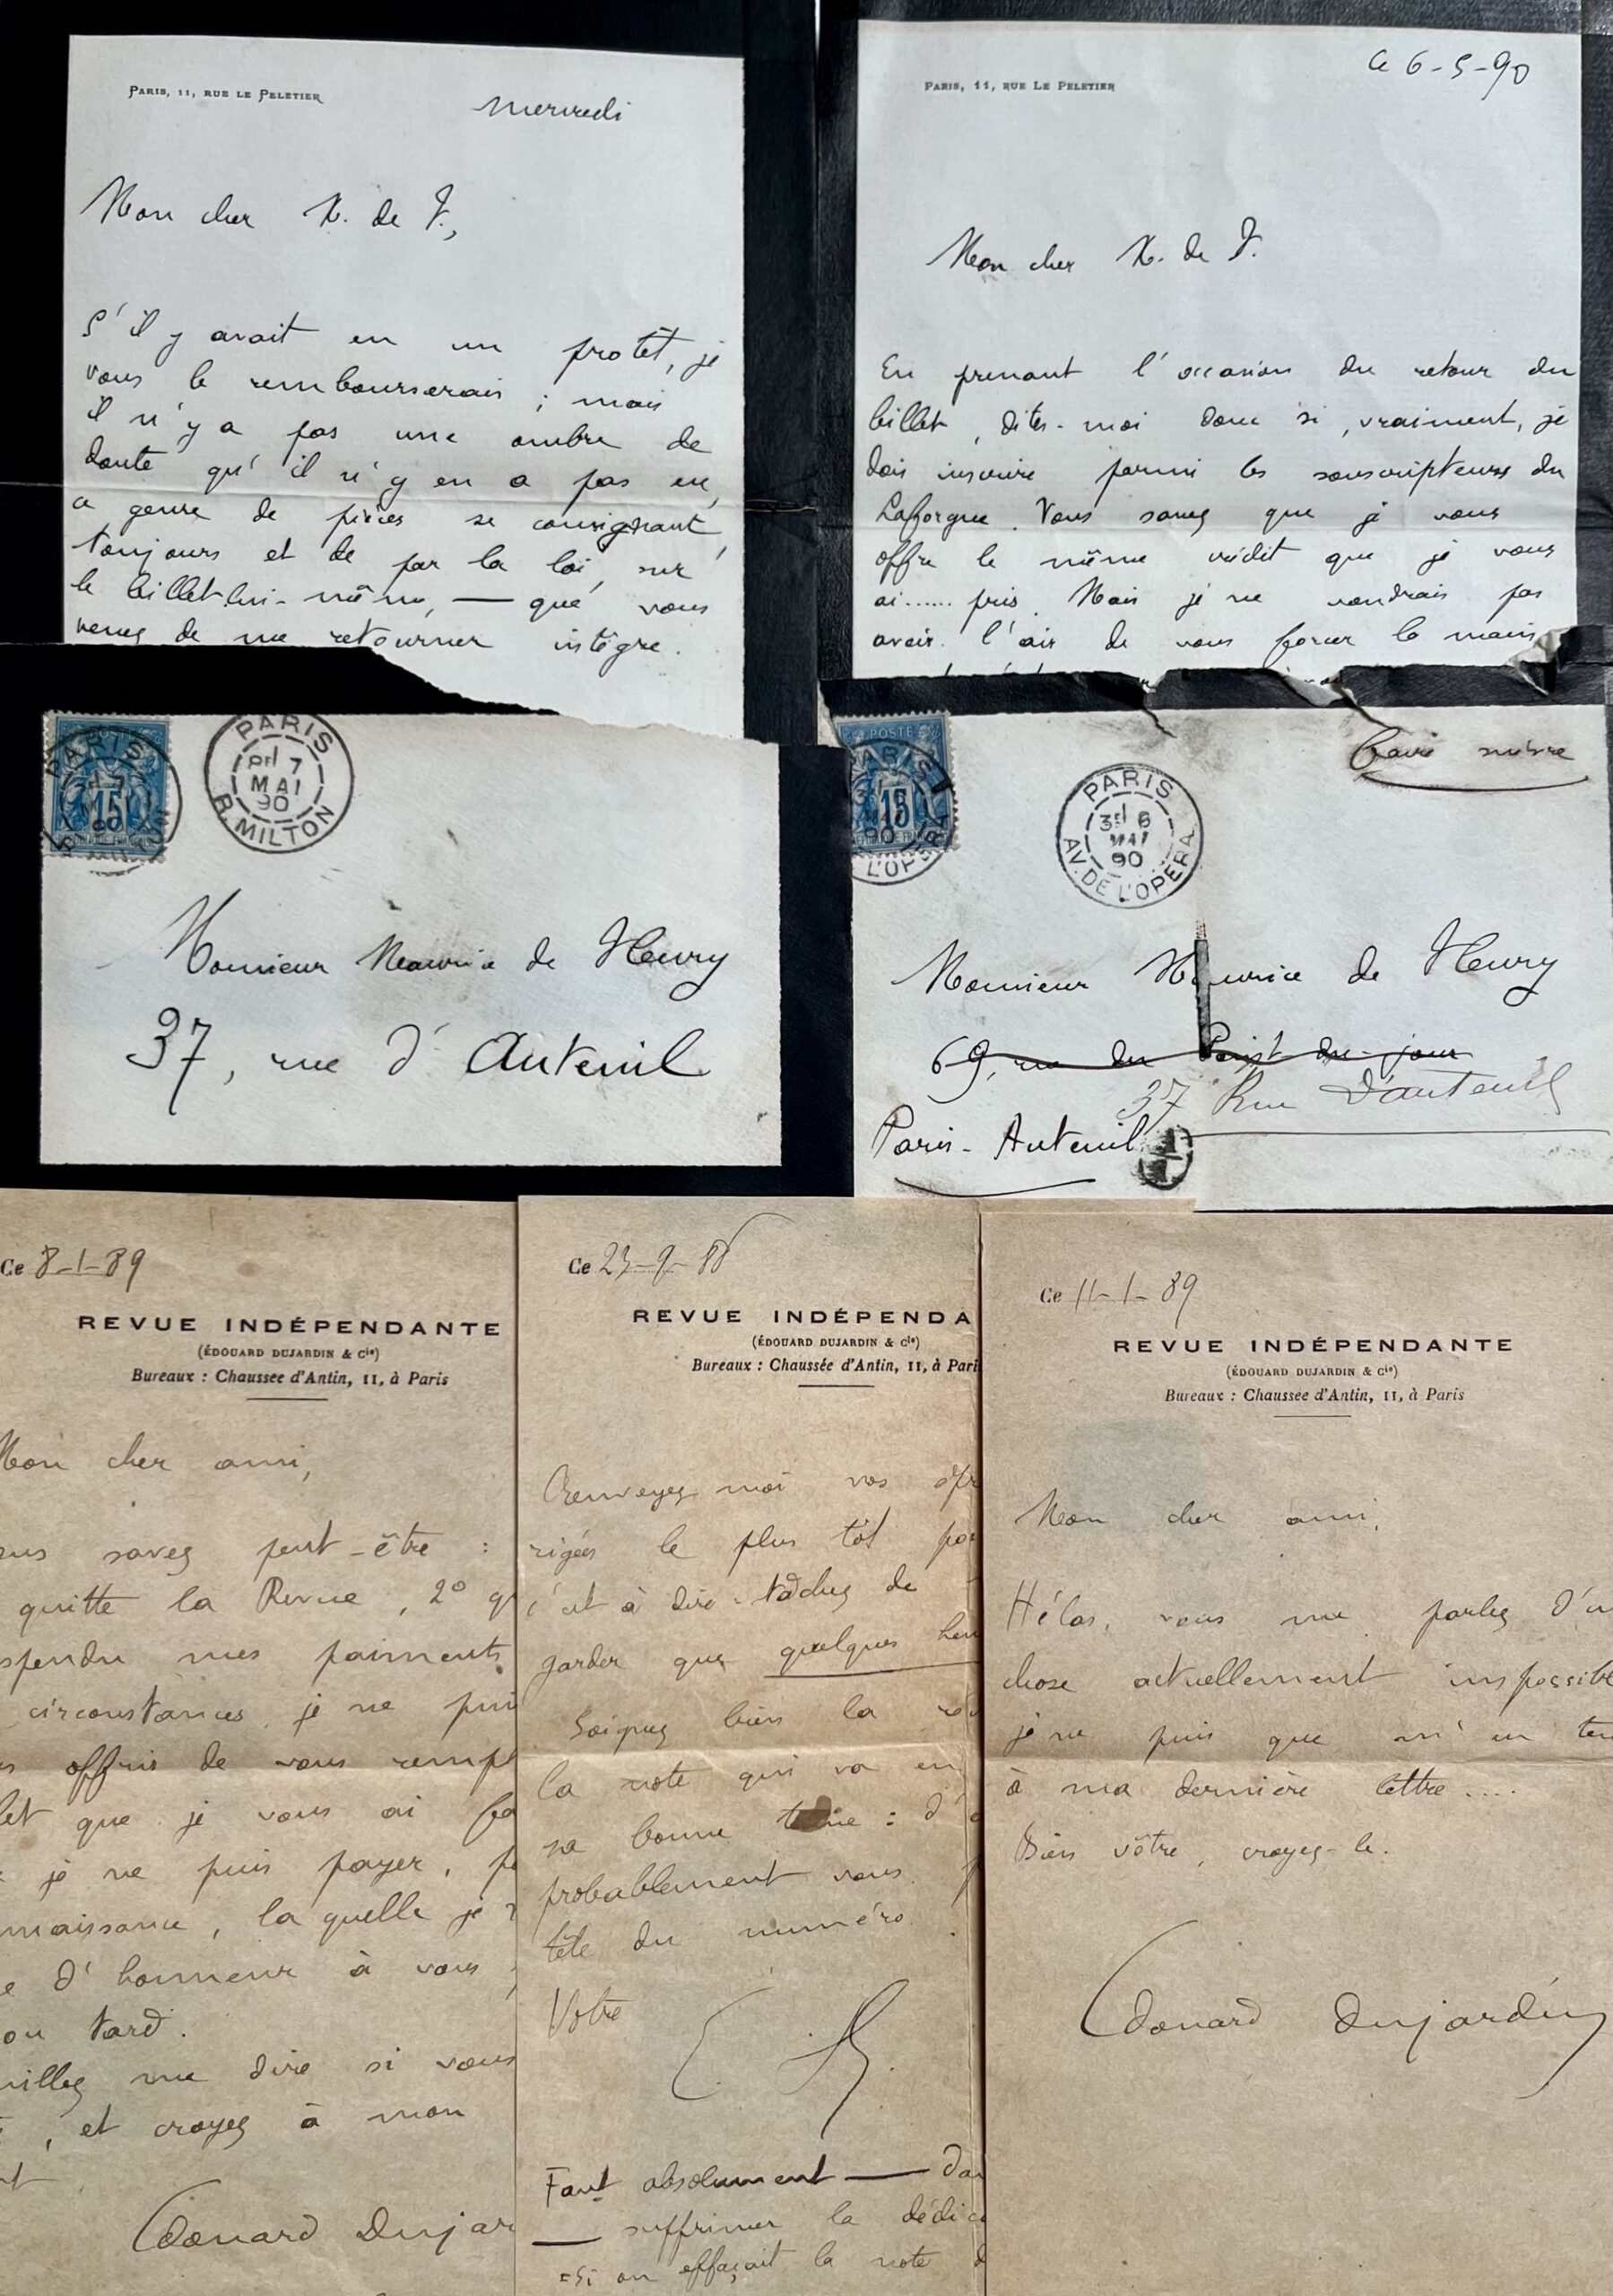 PARIS, 11, RUE LE PELETIER
Mercredi
Mon cher M. de F.,
S'il y avait eu un protêt, je
vous le rembourserais ; mais
il n'y a pas une ombre de
doute qu'il n'y en a pas eu,
ce genre de pièces se consignant,
toujours et de par la loi, sur
le billet lui-même, — que vous
venez de me retourner intègre.
PARIS
7
MAI
90
R. MILTON
15
Monsieur Maurice de Fleury
37, rue d'Auteuil
PARIS, 11, RUE LE PELETIER
Ce 6-5-90
Mon cher M. de F.
En prenant l'occasion du retour du
billet, dites-moi donc si, vraiment, je
dois inscrire parmi les souscripteurs du
Laforgue. Vous savez que je vous
offre le même crédit que je vous
ai...... pris. Mais je ne voudrais pas
avoir l'air de vous forcer la main
POSTE
15
Faire suivre
PARIS
3E 6
MAI
90
AV. DE L'OPERA
Monsieur Maurice de Fleury
69, rue du Point-du-jour
37 Rue d'Auteuil
Paris-Auteuil
Ce 8-1-89
REVUE INDÉPENDANTE
(ÉDOUARD DUJARDIN & Cie)
Bureaux : Chaussée d'Antin, 11, à Paris
Mon cher ami,
savez peut-être :
quitte la Revue, 2°
mes paiements
circonstances, je ne puis
offrir de vous
que je vous ai
je ne puis payer,
la quelle je
d'honneur à vous
ou tard.
me dire si vous
, et croyez à mon
Edouard Dujar
Ce 23-9-88
REVUE INDÉPENDA
(ÉDOUARD DUJARDIN & Cie)
Bureaux : Chaussée d'Antin, 11, à Pari
Renvoyez moi vos épr
rigées le plus tôt pos
c'est à dire - tâchez de
garder que quelques heu
Soignez bien la
la note qui va en
sa bonne
probablement vous
tête du numéro.
Votre
Faut absolument —
— supprimer la dédica
=Si on effaçait la note d
Ce 11-1-89
REVUE INDÉPENDANTE
(ÉDOUARD DUJARDIN & Cie)
Bureaux : Chaussée d'Antin, 11, à Paris
Mon cher ami,
Hélas, vous me parlez d'u
chose actuellement impossible
je ne puis que m'en ten
à ma dernière lettre....
Bien vôtre, croyez-le.
Edouard Dujardin